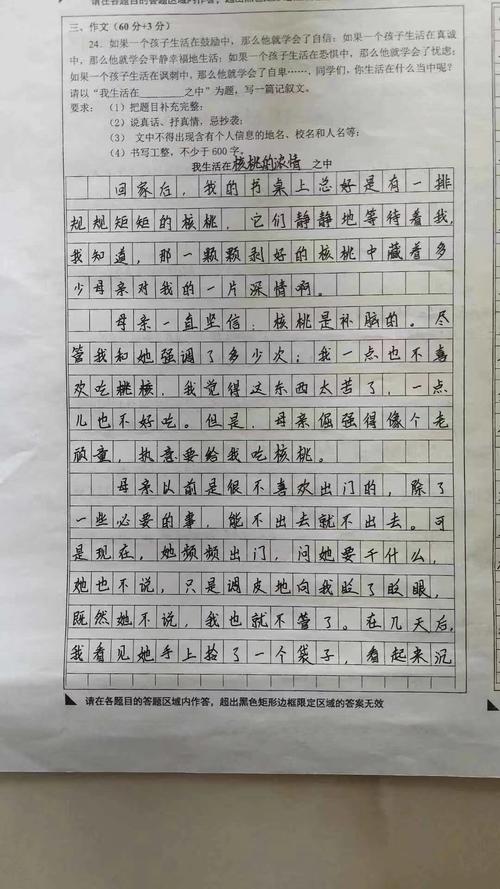 请在各题目的答题区域内作答，超出黑色矩形边框限定区域的答案无效
三、作文(60分+3分)
24. 如果一个孩子生活在鼓励中，那么他就学会了自信；如果一个孩子生活在真诚
中，那么他就学会平静幸福地生活；如果一个孩子生活在恐惧中，那么他就学会了忧虑；
如果一个孩子生活在讽刺中，那么他就学会了自卑……，同学们，你生活在什么当中呢？
请以“我生活在________之中”为题，写一篇记叙文。
要求：（1）把题目补充完整；
（2）说真话、抒真情，忌抄袭；
（3） 文中不得出现含有个人信息的地名、校名和人名等；
（4）书写工整，不少于600字。
我生活在核桃的浓情之中
回家后，我的书桌上总好是有一排
规规矩矩的核桃，它们静静地等待着我，
我知道，那一颗颗剥好的核桃中藏着多
少母亲对我的一片深情啊。
母亲一直坚信：核桃是补脑的。尽
管我和她强调了多少次：我一点也不喜
欢吃桃核，我觉得这东西太苦了，一点
儿也不好吃。但是，母亲倔强得像个老
顽童，执意要给我吃核桃。
母亲以前是很不喜欢出门的，除了
一些必要的事，能不出去就不出去。可
是现在，她频频出门，问她要干什么，
她也不说，只是调皮地向我眨了眨眼，
既然她不说，我也就不管了。在几天后，
我看见她手上拾了一个袋子，看起来沉
请在各题目的答题区域内作答，超出黑色矩形边框限定区域的答案无效